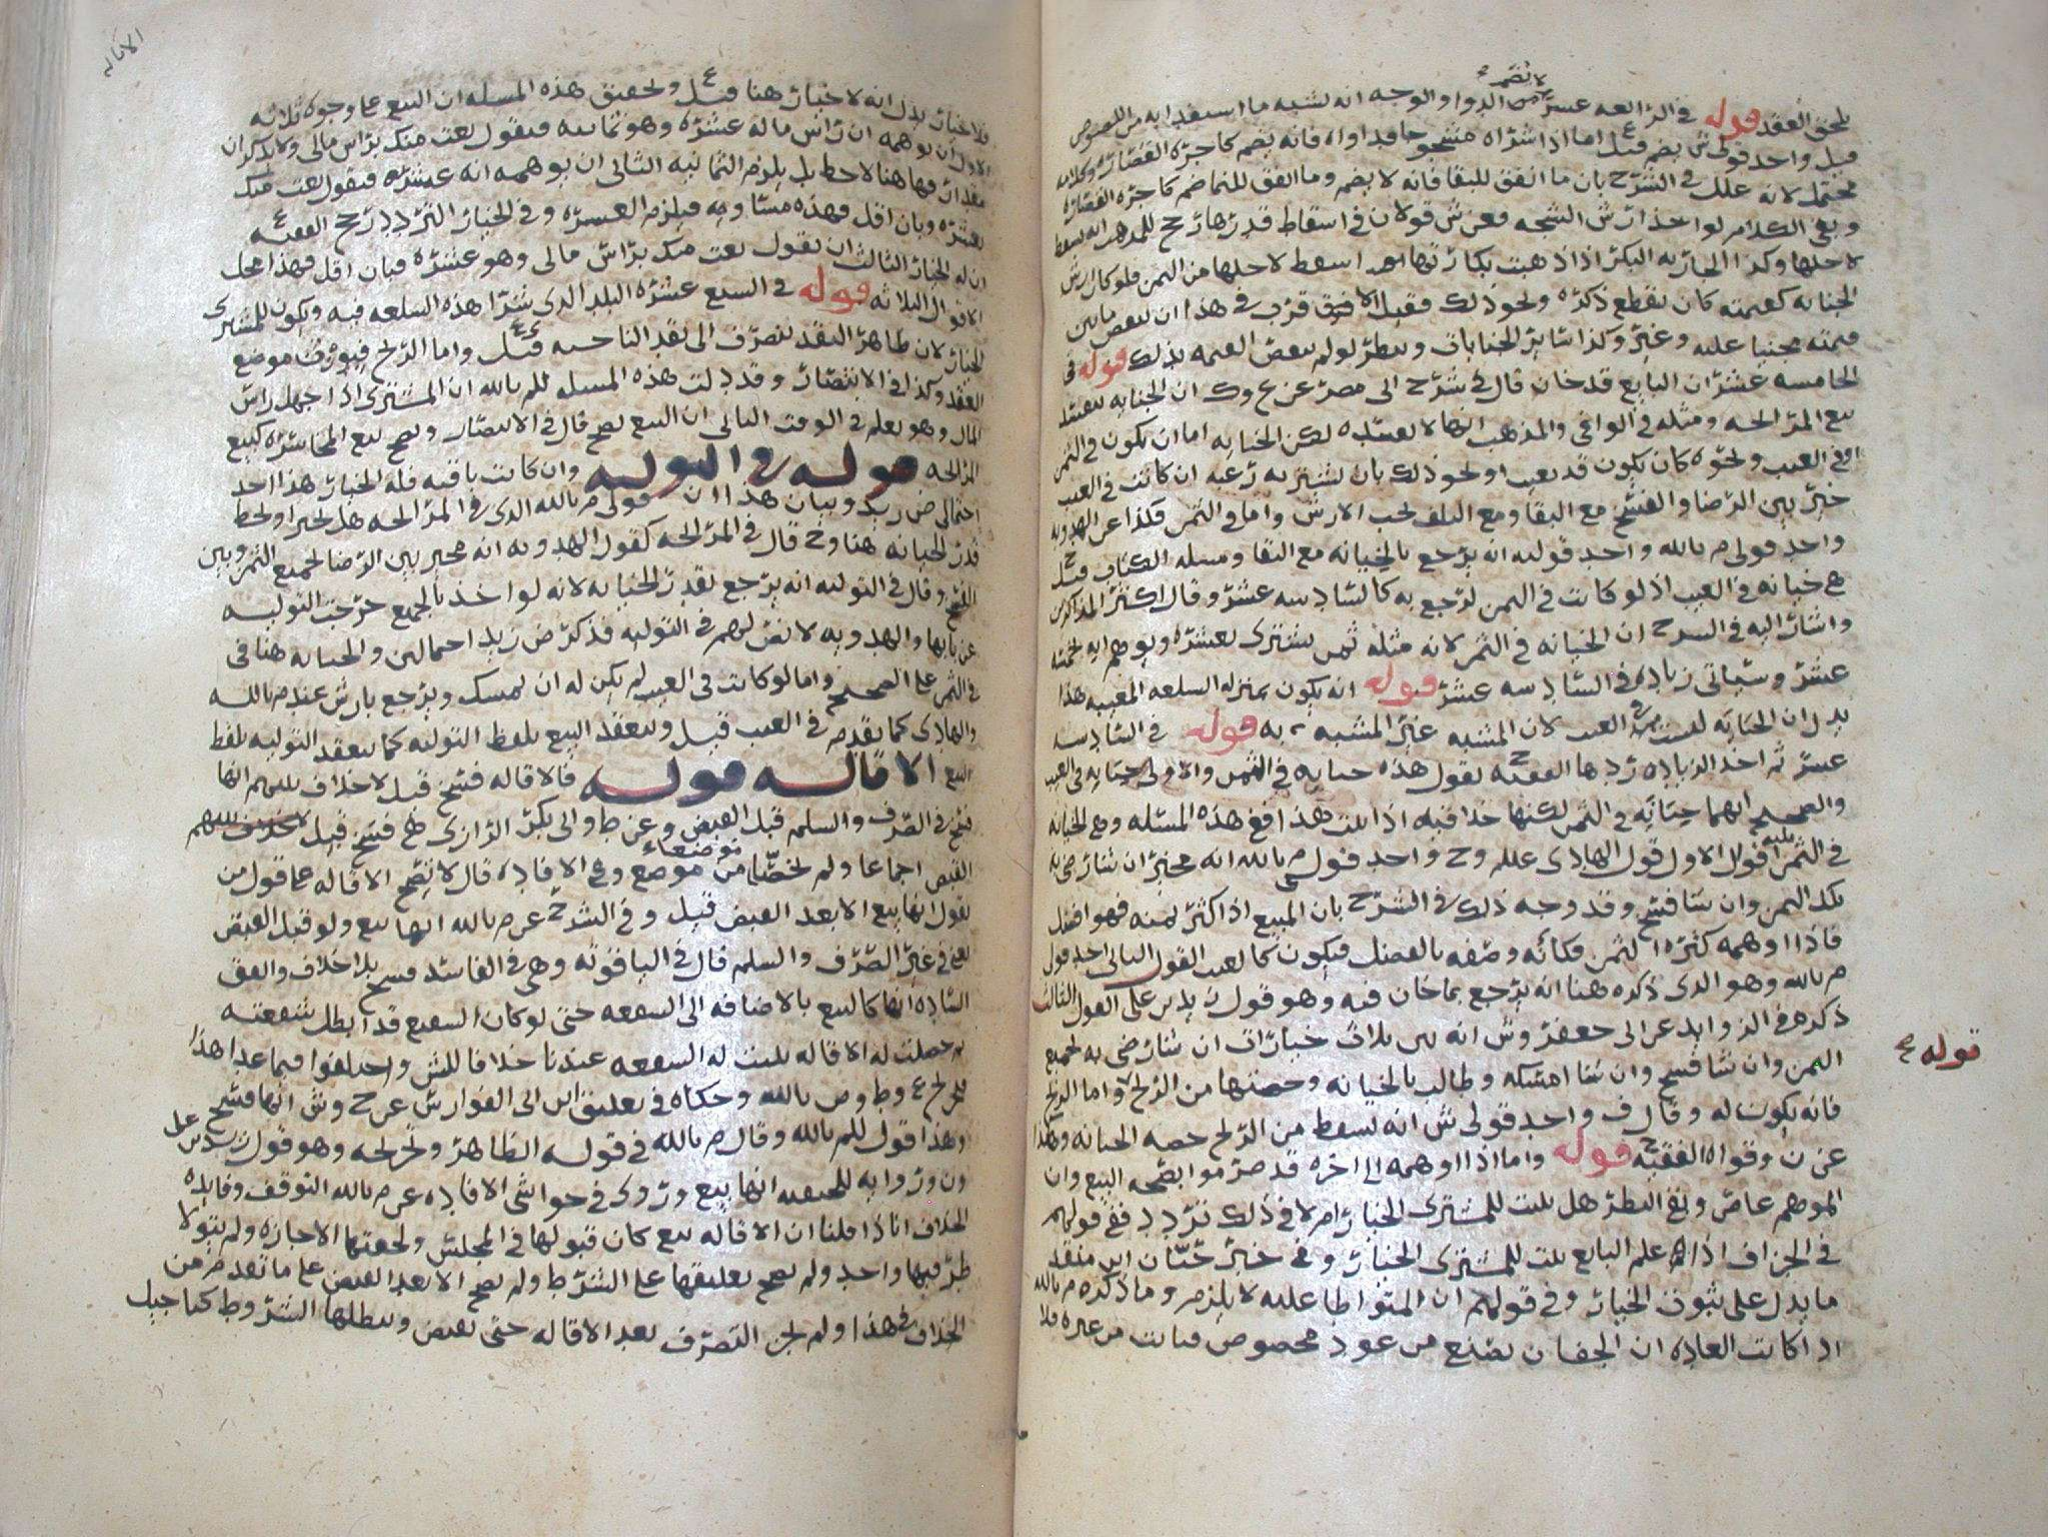 قوله في الرابعه عشر الدوا والوجه انه لشبه ما
قيل واحد قولي ش يضم قيل اما اذا اشتراه فانه يضم كما جره القصاره
محتمل لانه علل في الشرح بان ما انفق للبقا فانه لا يضم وما انفق للنما ضم كاجره القصاره
وبقي الكلام لو اخذ ارش الشجه فعن ش قولان في اسقاط قدرها
لاجلها وكذا الجاريه البكر اذا ذهبت بكارتها اسقط لاجلها من الثمن فلو كان ارش
الجنايه كقيمته كان يقطع ذكره ونحو ذلك قرب في هذا ان
قيمته مجنيا عليه وغير وكذا سائر الجنايات وينظر لو لم قوله في
الخامسه عشر ان البايع قد خان قال في شرح ابي مضر عن ع وك ان الخيانه
بيع المرابحه ومثله في الوافي والمذهب انها لا تفسده لكن الخيانه اما ان تكون في الثمن
او في العيب ونحوه كان يكون قد تعيب او نحو ذلك بان يشتريه برغبه ان كانت في العيب
خير بين الرضا والفسخ مع البقا ومع التلف يجب الارش واما في الثمن فكذا عن الهدويه
واحد قولي م بالله واحد قوليه انه يرجع بالخيانه مع البقا ومسله الكتاب قيل
هي خيانه في العيب اذ لو كانت في الثمن لرجع به كالسادسه عشر وقال اكثر المذاكرين
واشار اليه في الشرح ان الخيانه في الثمن لانه مثله ثمن يشتري بعشره ويوهم انه بخمسه
عشر وسياتي زياده في السادسه عشر قوله انه يكون بمنزله السلعه المعيبه هذا
يدل ان الخيانه ليست من العيب لان المشبه غير المشبه به قوله في السادسه
عشر ثم اخذ الزياده ردها الفقيه ح يقول هذه خيانه في الثمن والاولى خيانه في العيب
والصحيح انهما خيانه في الثمن لكنها خلافيه اذا ثبت هذا ففي هذه المسئله وهي الخيانه
في الثمن اقوال الاول قول الهادي عليلم وح واحد قولي م بالله انه مخير ان شا رضي به
بكل الثمن وان شا فسخ وقد وجه ذلك في الشرح بان المبيع اذا كثر ثمنه فهو افضل
فاذا اوهمه كثره الثمن فكانه وصفه بالفضل فيكون كالعيب القول الثاني احد قولي
م بالله وهو الذي ذكره هنا انه يرجع بما خان فيه وهو قول زيد بن علي القول الثالث
ذكره في الزوايد عن ابي جعفر وش انه بين ثلاث خيارات ان شا رضي به بجميع
الثمن وان شا فسخ وان شا امسكه وطالب بالخيانه وحصتها من الربح واما الربح
فانه يكون له وقال ف واحد قولي ش انه يسقط من الربح حصه الخيانه وهكذا
عن ن وقواه الفقيه ح قوله واما اذا اوهمه الى اخره قد صرحوا بصحه البيع وان
الموهم عاص وبقي النظر هل يثبت للمشتري الخيار ام لا في ذلك تردد ففي قولهم
في الجزاف اذا علم البايع ثبت للمشتري الخيار وفي خبر حبان ابن منقذ
ما يدل على ثبوت الخيار وفي قولهم ان المتواطا عليه لا يلزم وما ذكره م بالله
اذا كانت العاده ان الجفان تصنع من عود مخصوص فبانت من غيره فلا
قوله
الاقاله
فلا خيار يدل انه لا خيار هنا قيل ع وتحقيق هذه المسله ان البيع على وجوه ثلاثه
الاول ان يوهمه ان راس ماله عشره وهو ثمانيه فيقول بعت منك براس مالي ولا يذكر ان
مقدار فها هنا لا حط بل يلزم الثمانيه الثاني ان يوهمه انه عشره فيقول بعت منك
بعشره وبان اقل فهذه مساومه فيلزم العشره وفي الخيار التردد رجح الفقيه ع
ان له الخيار الثالث ان يقول بعت منك براس مالي وهو عشره فبان اقل فهذا محل
الاقوال الثلاثه قوله في السبع عشره البلد الذي شرا هذه السلعه فيه ويكون للمشتري
الخيار لان ظاهر النقد ينصرف الى نقد الناحيه قيل واما الربح فيعرف موضع
العقد وكذا في الانتصار وقد دلت هذه المسله للم بالله ان المشتري اذا جهل راس
المال وهو يعلم في الوقت الثاني ان البيع يصح قال في الانتصار ويصح بيع المخاسره كبيع
المرابحه قوله في التوليه وان كانت باقيه فله الخيار هذا احد
احتمالي ض زيد وبيان هذا ان قولي م بالله الذي في المرابحه هل يخير او يحط
قدر الخيانه هنا وح قال في المرابحه كقول الهدويه انه مخير بين الرضا بجميع الثمن وبين
الفسخ وقال في التوليه انه يرجع بقدر الخيانه لانه لو اخذ بالجميع خرجت التوليه
عن بابها والهدويه لا نص لهم في التوليه فذكر ض زيد احتمالين والخيانه هنا في
في الثمن على الصحيح واما لو كانت في العيب لم يكن له ان يمسك ويرجع بارش عند م بالله
والهادي كما تقدم في العيب قيل وينعقد البيع بلفظ التوليه كما ينعقد التوليه بلفظ
البيع الاقاله قوله فالاقاله فسخ قيل لا خلاف بينهم انها
فسخ في الصرف والسلم قبل القبض وعن ط وابي بكر الرازي هي فسخ قبل
القبض اجماعا ولم يخصا موضعا من موضع وفي الافاده قال لا تصح الاقاله على قول من
يقول انها بيع الا بعد القبض قيل وفي الشرح عن م بالله انها بيع ولو قبل القبض
يعني في غير الصرف والسلم قال في الياقوته وهي في الفاسد فسخ بلا خلاف واتفق
الساده انها كالبيع بالاضافه الى الشفعه حتى لو كان الشفيع قد ابطل شفعته
ثم حصلت له الاقاله ثبتت له الشفعه عندنا خلافا للش واختلفوا فيما عدا هذا
فخرج ع وط و ص بالله وحكاه في تعليق ابن ابي الفوارس عن ح وش انها فسخ
وهذا قول للم بالله وقال م بالله في قوله الظاهر وتخريجه وهو قول زيد بن علي
ون وروايه للحنفيه انها بيع وروى في حواشي الافاده عن م بالله التوقف وفايده
الخلاف انا اذا قلنا ان الاقاله بيع كان قبولها في المجلس ولحقتها الاجازه ولم يتولا
طرفيها واحد ولم يصح تعليقها على الشرط ولم يصح الا بعد القبض على ما تقدم من
الخلاف في هذا ولم يجز التصرف بعد الاقاله حتى يقبض ويبطلها الشروط